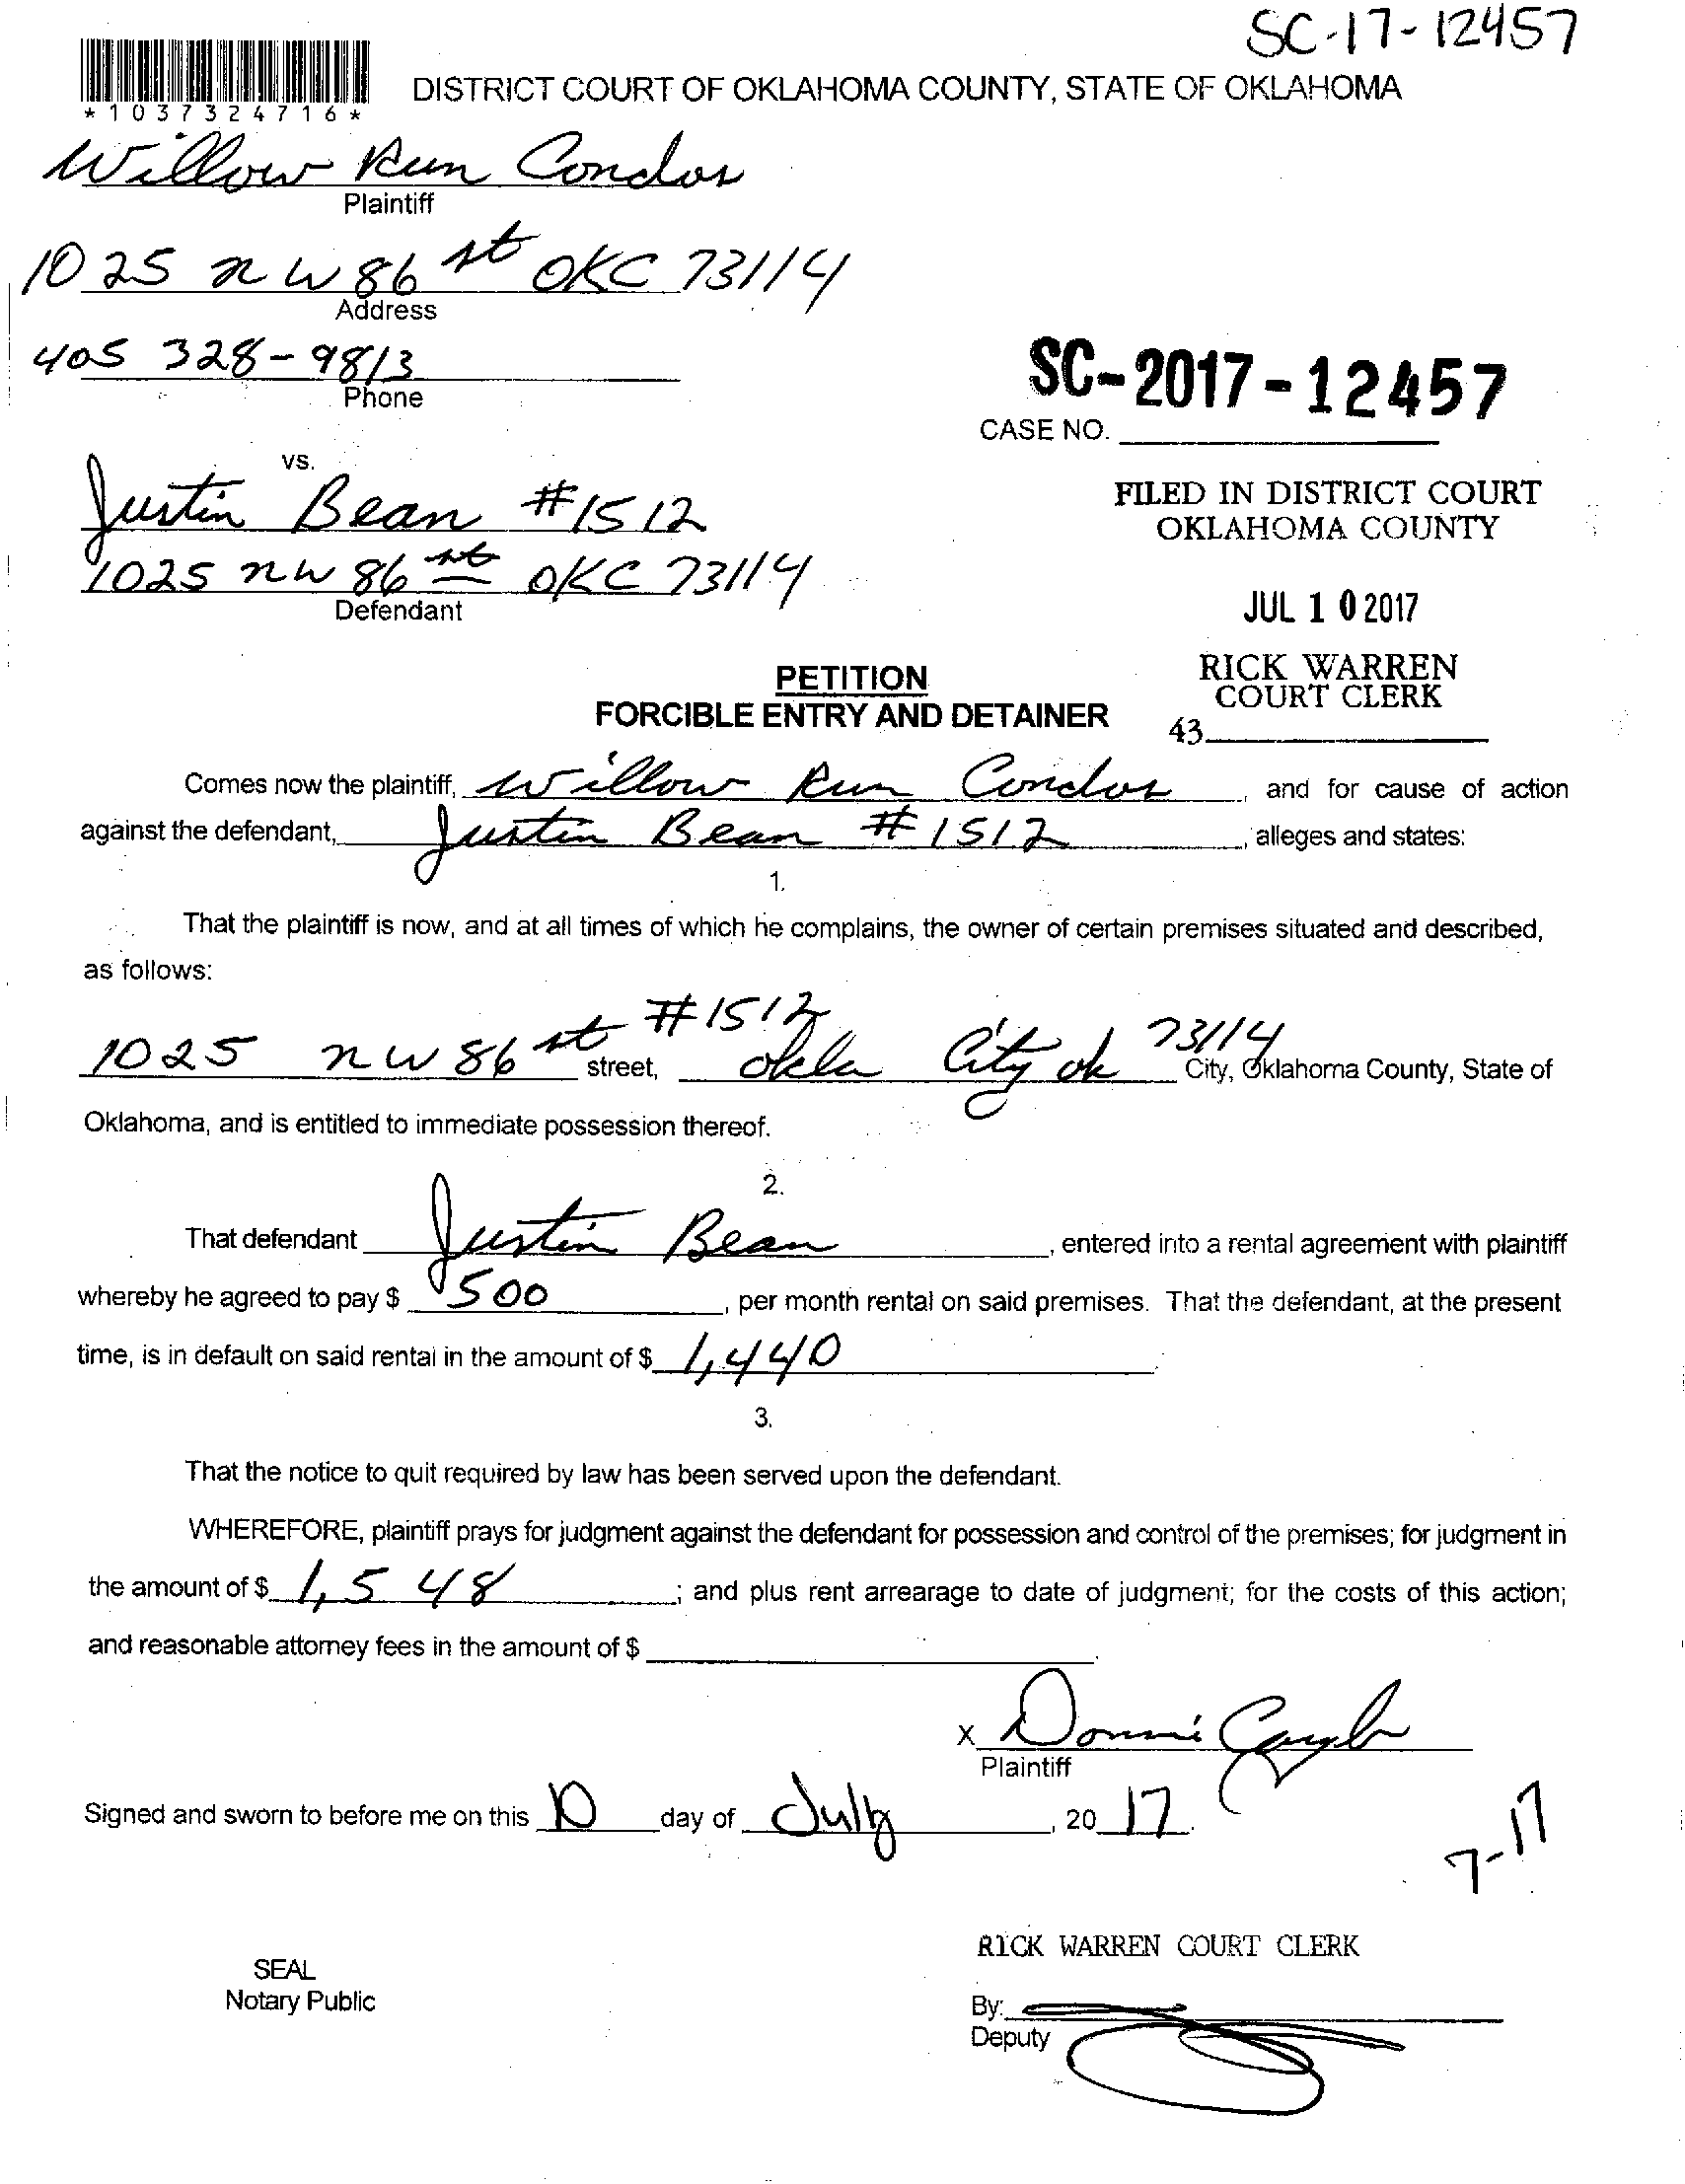 SC-17-12457
*1037324716*
DISTRICT COURT OF OKLAHOMA COUNTY, STATE OF OKLAHOMA
Willow Run Condos
Plaintiff
1025 nw 86 st OKC 73114
Address
405 328-9813
Phone
SC-2017-12457
CASE NO.
vs.
Justin Bean #1512
1025 nw 86 st OKC 73114
Defendant
FILED IN DISTRICT COURT
OKLAHOMA COUNTY
JUL 10 2017
RICK WARREN
COURT CLERK
43
PETITION
FORCIBLE ENTRY AND DETAINER
Comes now the plaintiff, Willow Run Condos, and for cause of action
against the defendant, Justin Bean #1512, alleges and states:
1.
That the plaintiff is now, and at all times of which he complains, the owner of certain premises situated and described,
as follows:
1025 nw 86 st #1512 street, okla City ok 73114 City, Oklahoma County, State of
Oklahoma, and is entitled to immediate possession thereof.
2.
That defendant Justin Bean, entered into a rental agreement with plaintiff
whereby he agreed to pay $ 500, per month rental on said premises. That the defendant, at the present
time, is in default on said rental in the amount of $ 1,440.
3.
That the notice to quit required by law has been served upon the defendant.
WHEREFORE, plaintiff prays for judgment against the defendant for possession and control of the premises; for judgment in
the amount of $ 1,548; and plus rent arrearage to date of judgment; for the costs of this action;
and reasonable attorney fees in the amount of $ .
X Donni
Plaintiff
Signed and sworn to before me on this 10 day of July, 20 17.
7-17
RICK WARREN COURT CLERK
SEAL
Notary Public
By:
Deputy